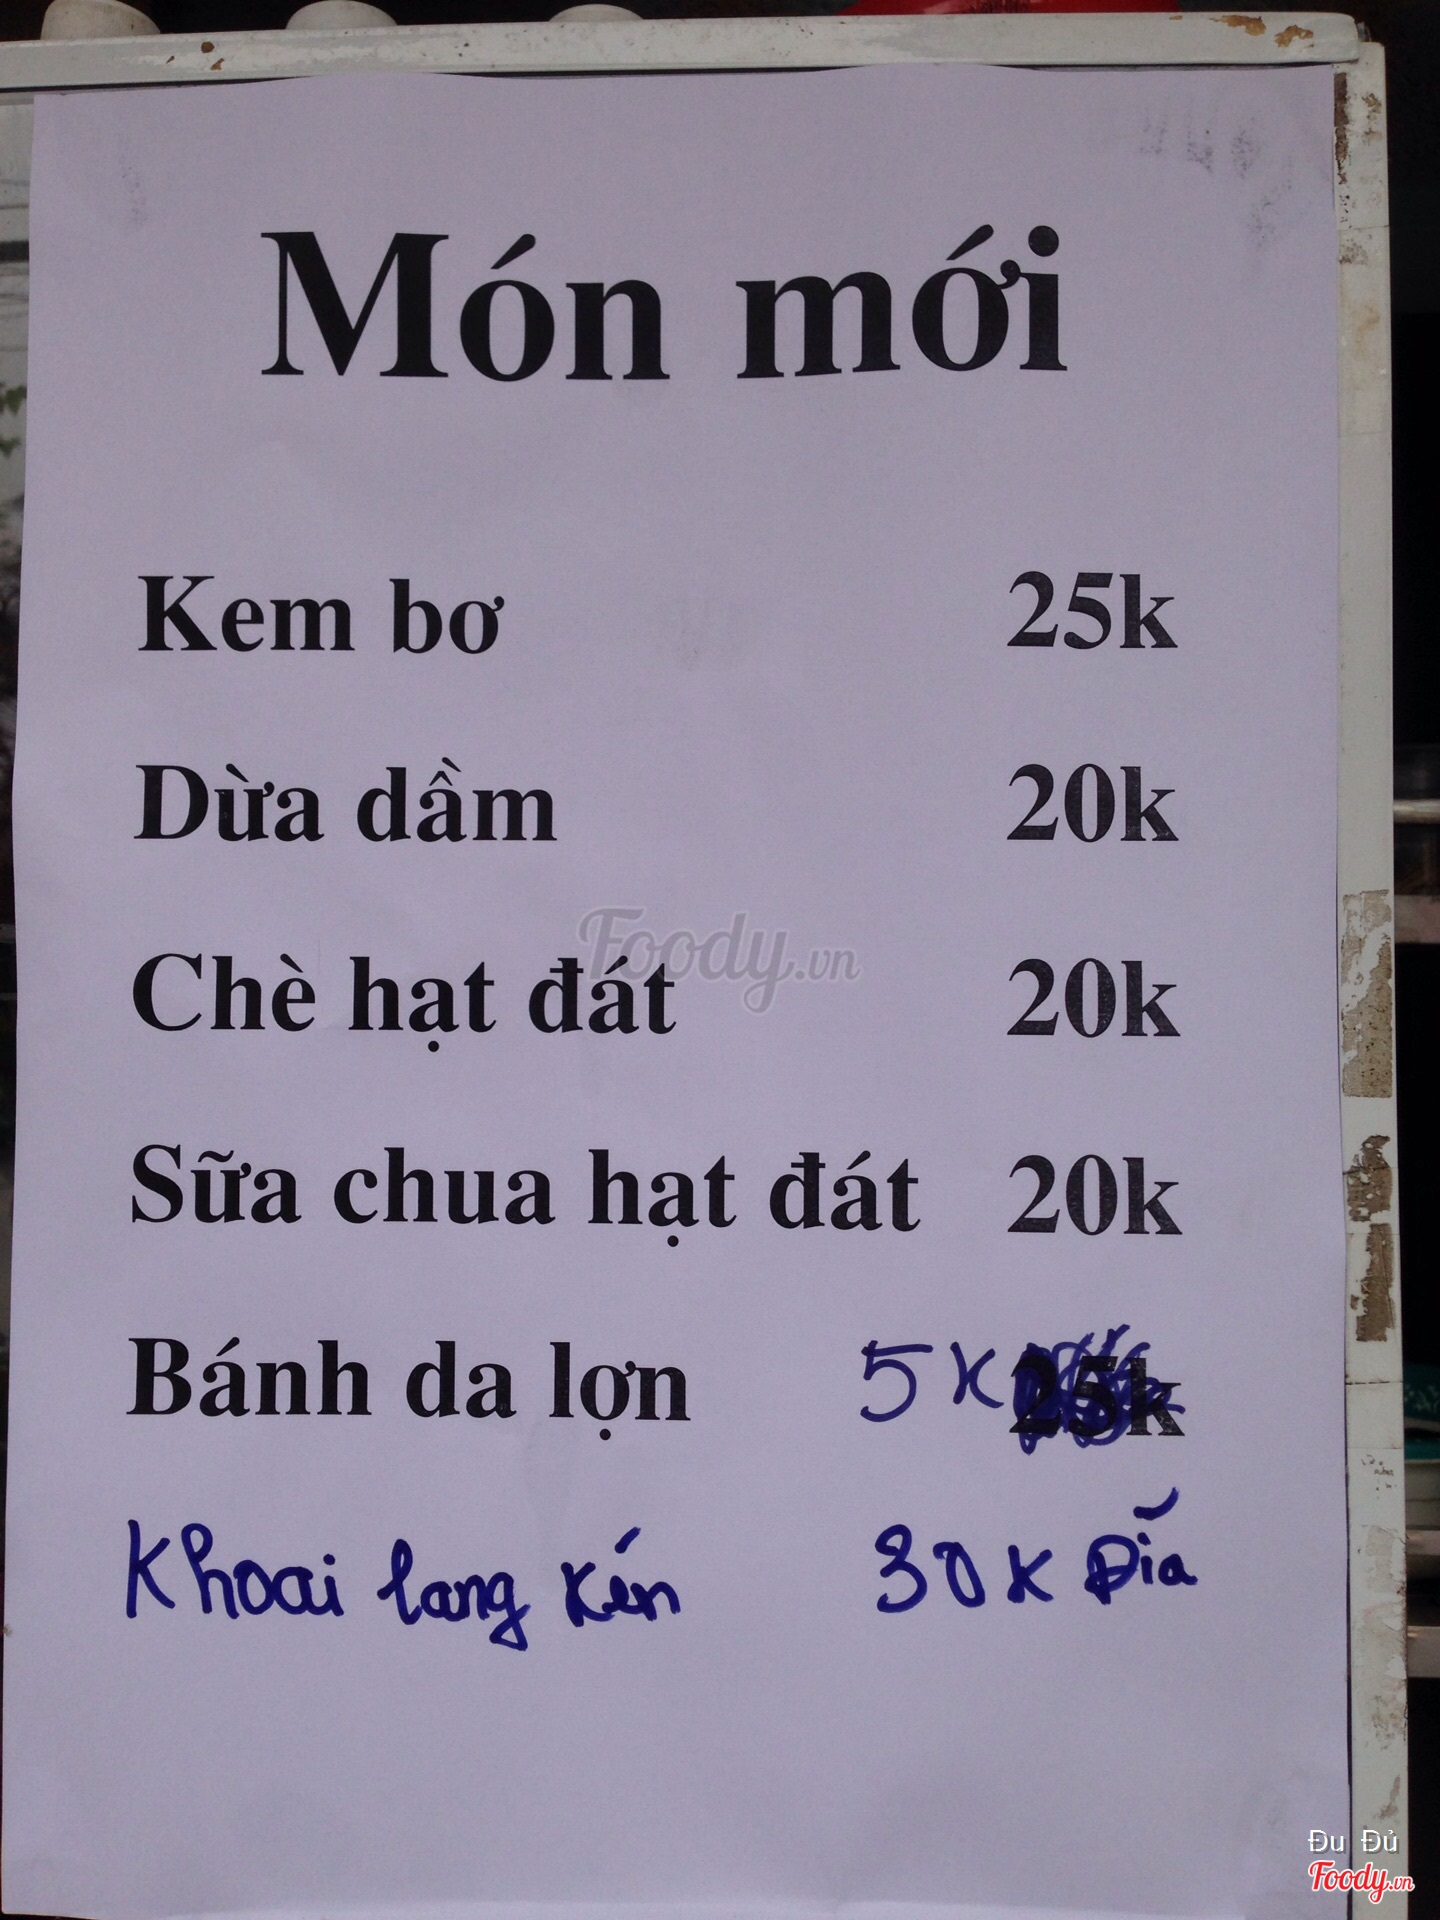 Món mới
Kem bơ 25k
Dừa dầm 20k
Chè hạt đát 20k
Foody.vn
Sữa chua hạt đát 20k
Bánh da lợn 5K 25k
Khoai lang kén 30K Đĩa
Đu Đủ
Foody.vn